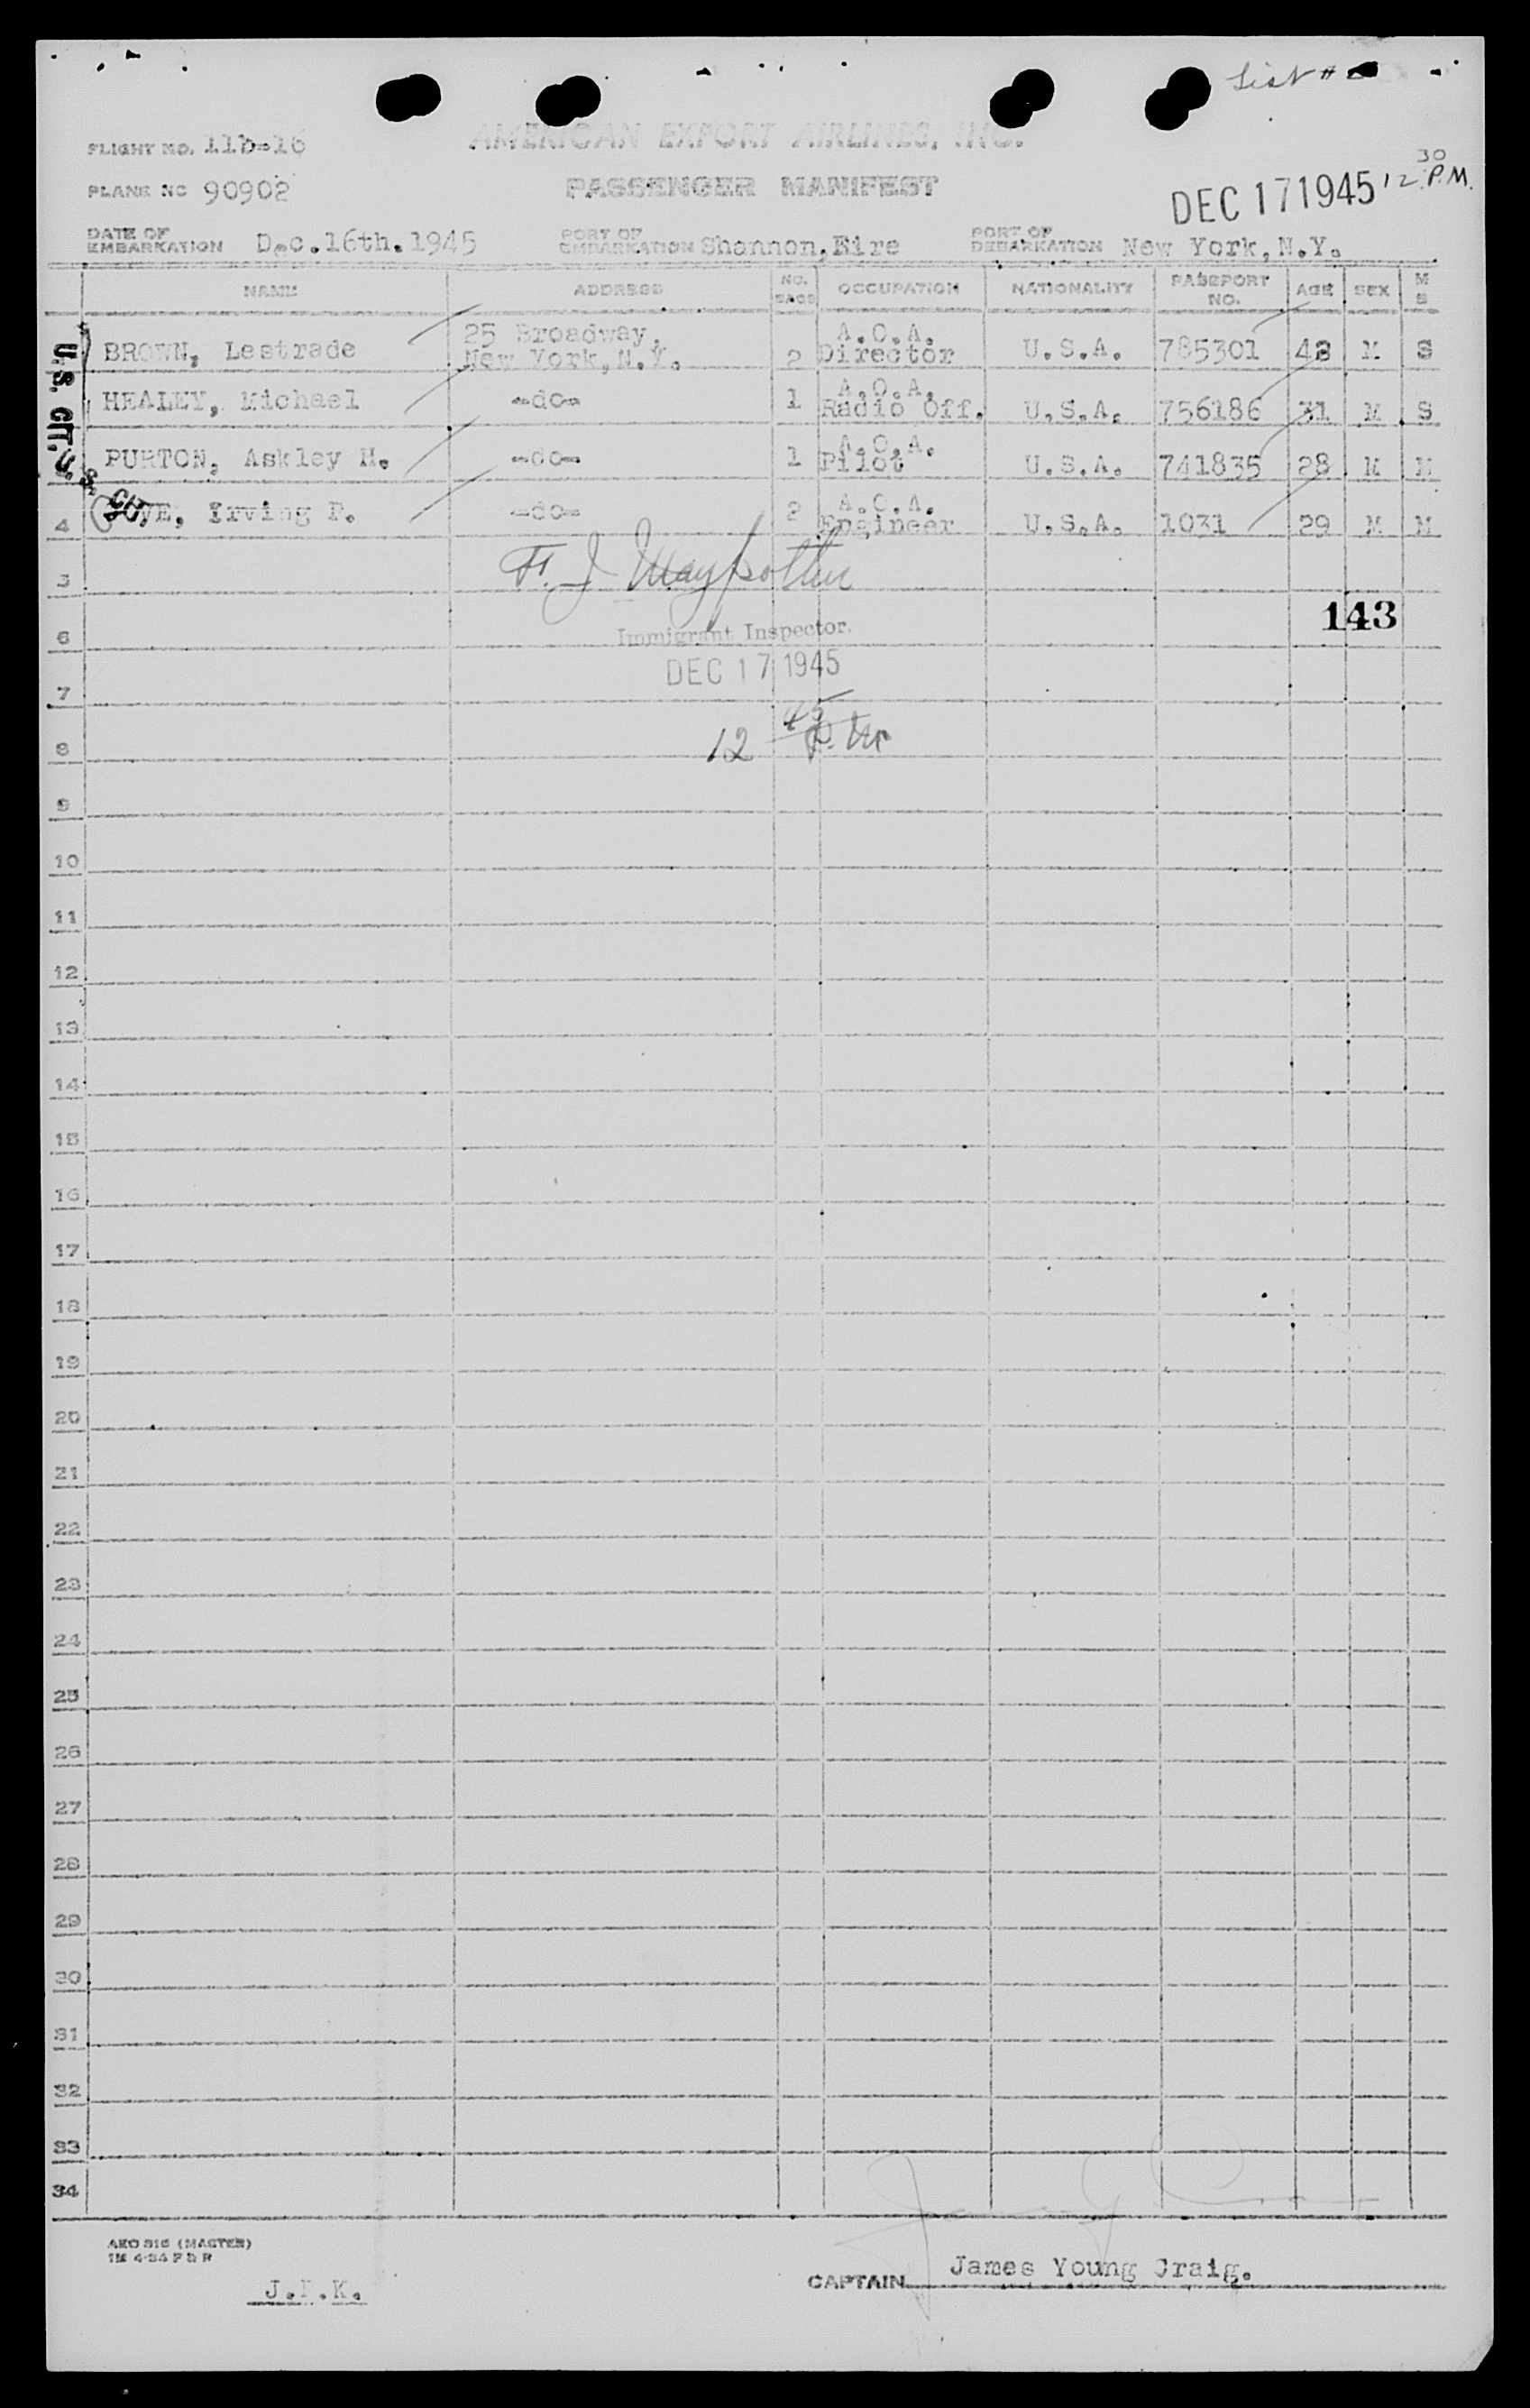 List #
FLIGHT NO. 11b-16
AMERICAN EXPORT AIRLINES, INC.
PLANE NO 90902
PASSENGER MANIFEST
DEC 17 1945 12 30 P.M.
DATE OF EMBARKATION Dec.16th.1945 PORT OF EMBARKATION Shannon,Eire PORT OF DEBARKATION New York,N.Y.
NAME ADDRESS NO. BAGS OCCUPATION NATIONALITY PASSPORT NO. AGE SEX M S
U.S. CIT.
BROWN, Lestrade 25 Broadway, New York,N.Y. 2 A.O.A. Director U.S.A. 785301 48 M S
HEALEY, Michael -do- 1 A.O.A. Radio Off. U.S.A. 756186 31 M S
PURTON, Askley H. -do- 1 A.O.A. Pilot U.S.A. 741835 28 M M
U.S. CIT.
4 Irving P. -do- 2 A.O.A. Engineer U.S.A. 1031 29 M M
F. J.
5
143
6
Immigrant Inspector.
DEC 17 1945
7
12 45 P.M.
8
9
10
11
12
13
14
15
16
17
18
19
20
21
22
23
24
25
26
27
28
29
30
31
32
33
34
AEO 316 (MASTER)
J. .K.
CAPTAIN James Young Craig.